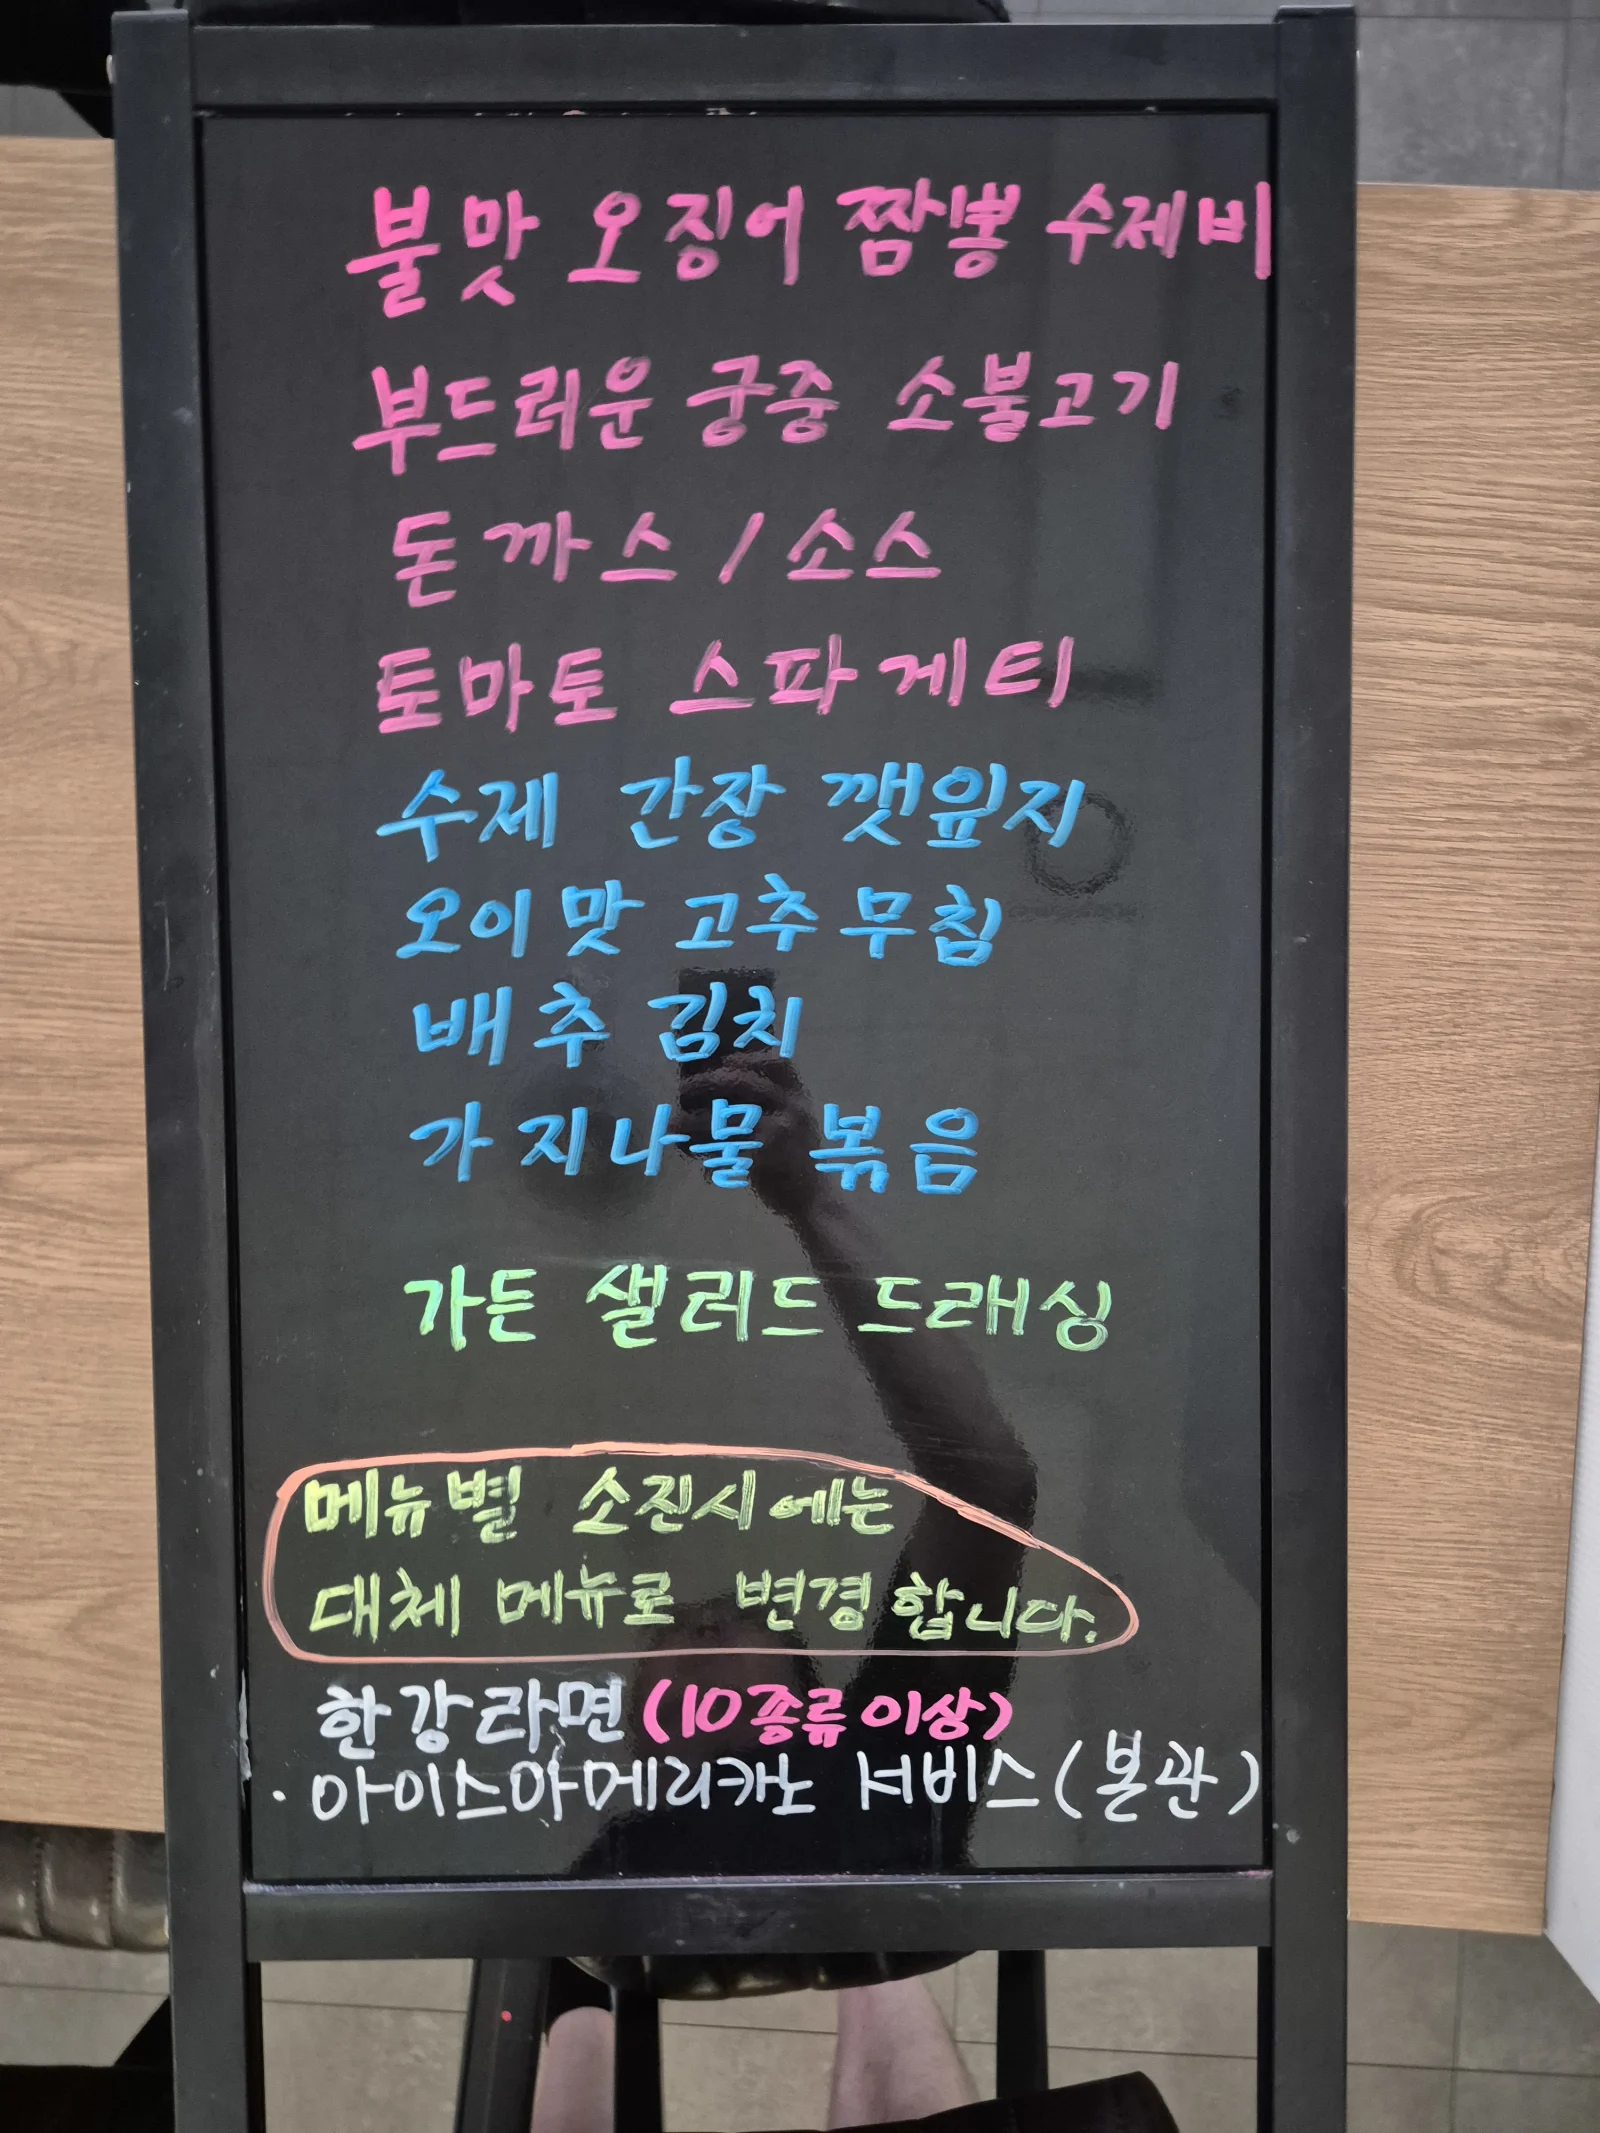 불맛 오징어 짬뽕 수제비
부드러운 궁중 소불고기
돈까스 / 소스
토마토 스파게티
수제 간장 깻잎지
오이맛 고추무침
배추 김치
가지나물 볶음
가든 샐러드 드래싱
메뉴별 소진시에는
대체 메뉴로 변경합니다.
한강라면 (10종류이상)
· 아이스아메리카노 서비스 (본관)